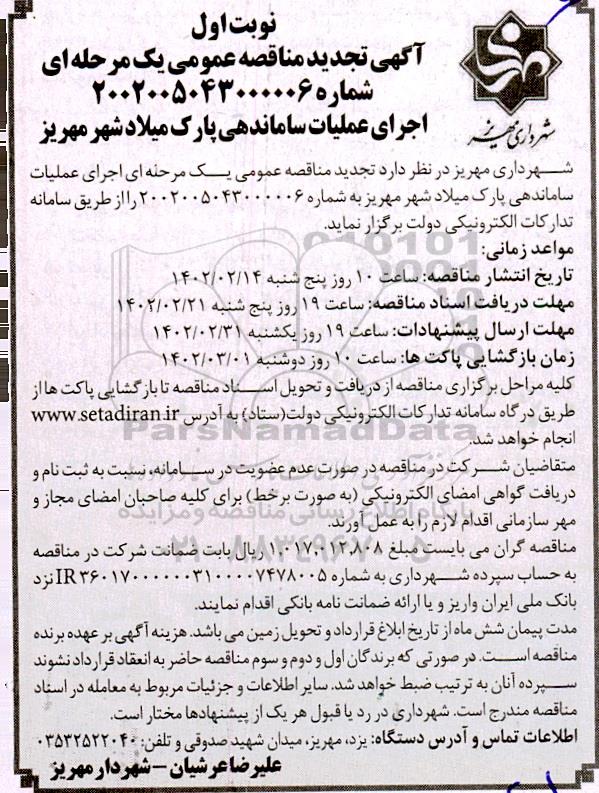 نوبت اول
آگهی تجدید مناقصه عمومی یک مرحله ای
شماره ۲۰۰۲۰۰۵۰۴۳۰۰۰۰۰۶
اجرای عملیات ساماندهی پارک میلاد شهر مهریز
شهرداری مهریز
شهرداری مهریز در نظر دارد تجدید مناقصه عمومی یک مرحله ای اجرای عملیات
ساماندهی پارک میلاد شهر مهریز به شماره ۲۰۰۲۰۰۵۰۴۳۰۰۰۰۰۶ را از طریق سامانه
تدارکات الکترونیکی دولت برگزار نماید.
مواعد زمانی:
تاریخ انتشار مناقصه: ساعت ۱۰ روز پنج شنبه ۱۴۰۲/۰۲/۱۴
مهلت دریافت اسناد مناقصه: ساعت ۱۹ روز پنج شنبه ۱۴۰۲/۰۲/۲۱
مهلت ارسال پیشنهادات: ساعت ۱۹ روز یکشنبه ۱۴۰۲/۰۲/۳۱
زمان بازگشایی پاکت ها: ساعت ۱۰ روز دوشنبه ۱۴۰۲/۰۳/۰۱
کلیه مراحل برگزاری مناقصه از دریافت و تحویل اسناد مناقصه تا بازگشایی پاکت ها از
طریق درگاه سامانه تدارکات الکترونیکی دولت(ستاد) به آدرس www.setadiran.ir
انجام خواهد شد.
ParsNamadData
متقاضیان شرکت در مناقصه در صورت عدم عضویت در سامانه، نسبت به ثبت نام و
دریافت گواهی امضای الکترونیکی (به صورت برخط) برای کلیه صاحبان امضای مجاز و
مهر سازمانی اقدام لازم را به عمل آورند.
پایگاه اطلاع رسانی مناقصه و مزایده
مناقصه گران می بایست مبلغ ۱،۰۱۷،۰۱۲،۸۰۸ ریال بابت ضمانت شرکت در مناقصه
۰۲۱-۸۸۳۴۹۶۷۰-۵
به حساب سپرده شهرداری به شماره IR۳۶۰۱۷۰۰۰۰۰۰۰۳۱۰۰۰۰۷۴۷۸۰۰۵ نزد
بانک ملی ایران واریز و یا ارائه ضمانت نامه بانکی اقدام نمایند.
مدت پیمان شش ماه از تاریخ ابلاغ قرارداد و تحویل زمین می باشد. هزینه آگهی بر عهده برنده
مناقصه است. در صورتی که برندگان اول و دوم و سوم مناقصه حاضر به انعقاد قرارداد نشوند
سپرده آنان به ترتیب ضبط خواهد شد. سایر اطلاعات و جزئیات مربوط به معامله در اسناد
مناقصه مندرج است. شهرداری در رد یا قبول هر یک از پیشنهادها مختار است.
اطلاعات تماس و آدرس دستگاه: یزد، مهریز، میدان شهید صدوقی و تلفن: ۰۳۵۳۲۵۲۲۰۴۰
علیرضا عرشیان - شهردار مهریز